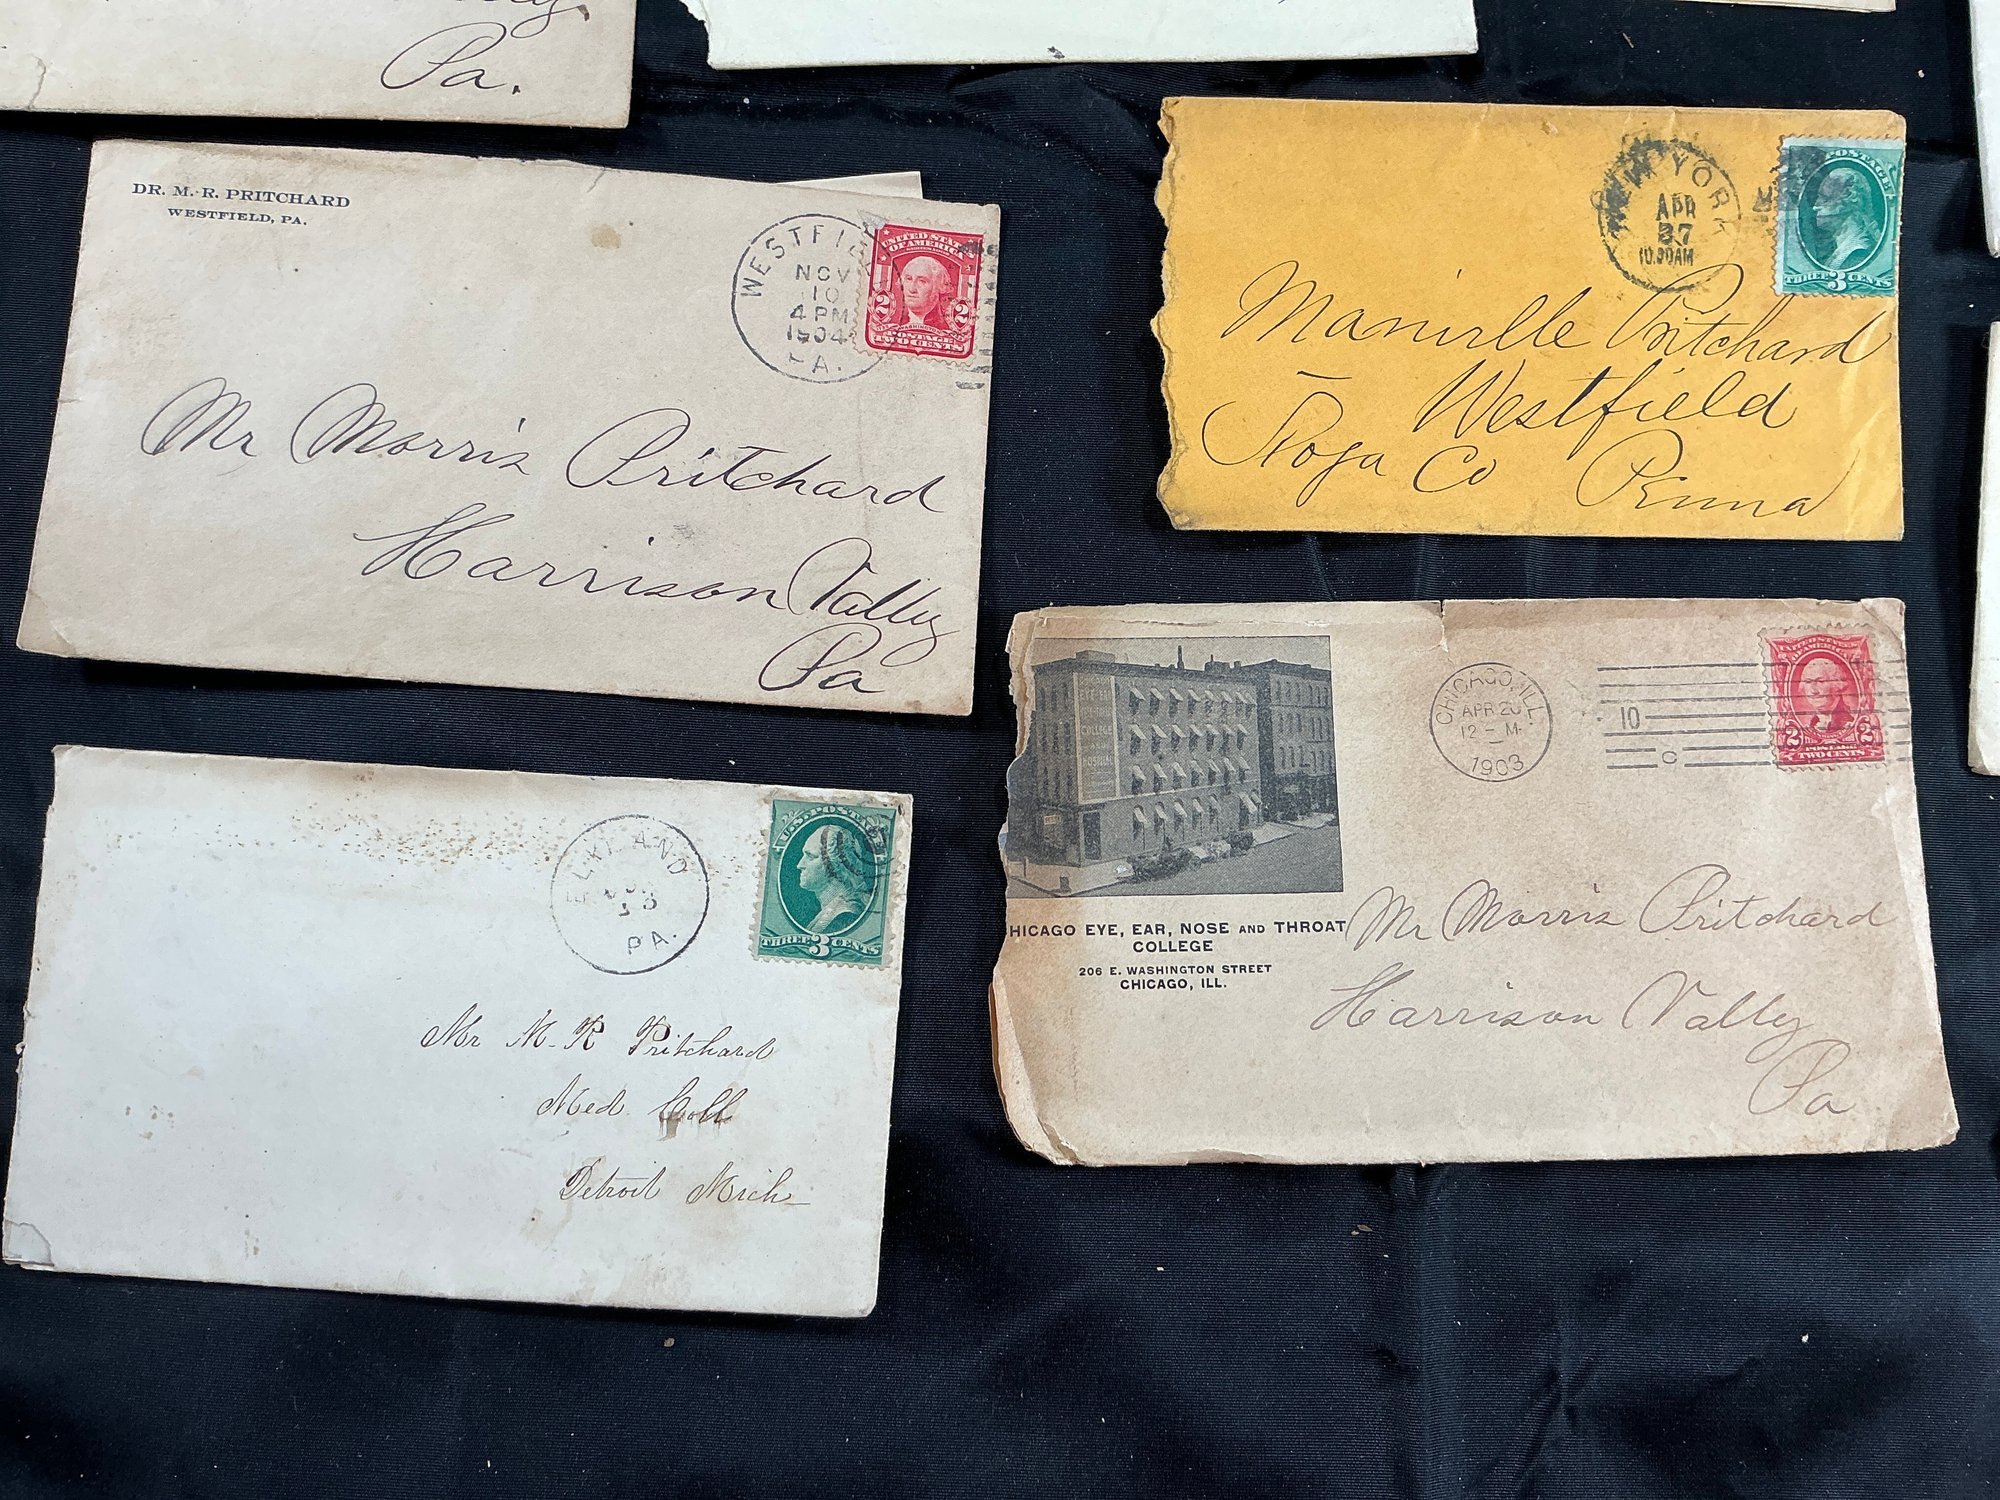 Pa.
DR. M. R. PRITCHARD
WESTFIELD, PA.
WESTFIEL
NOV
10
4 PM
1904
PA.
UNITED STATES
OF AMERICA
2 2
WASHINGTON
POSTAGE
TWO CENTS
Mr Morris Pritchard
Harrison Valley
Pa
NEW YORK
APR
27
10.30AM
POSTAGE
THREE 3 CENTS
Manville Pritchard
Westfield
Tioga Co Penna
ELKLAND
PA.
U.S. POSTAGE
THREE 3 CENTS
Mr M. R Pritchard
Med. Coll
Detroit Mich
COLLEGE
HOSPITAL
HICAGO EYE, EAR, NOSE AND THROAT
COLLEGE
206 E. WASHINGTON STREET
CHICAGO, ILL.
CHICAGO, ILL.
APR 20
12 - M.
1903
10
C
UNITED STATES
OF AMERICA
2 2
POSTAGE
TWO CENTS
Mr Morris Pritchard
Harrison Valley
Pa